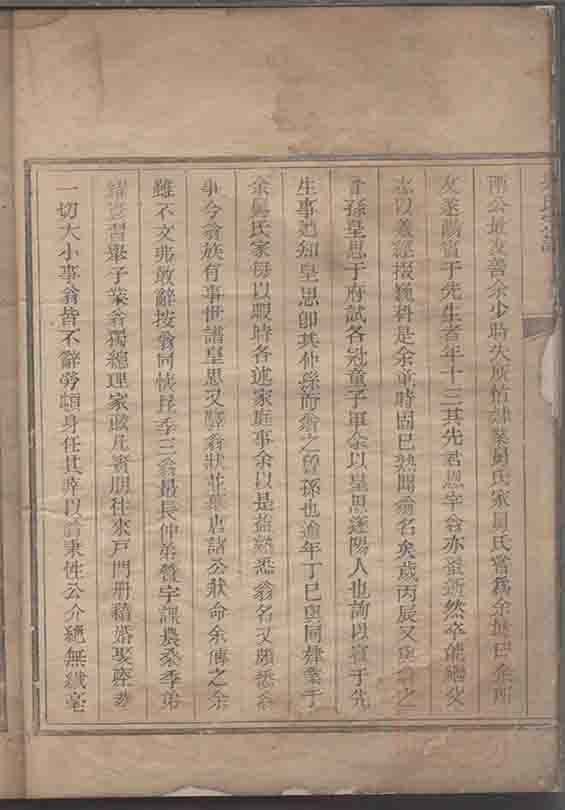 兩公最友善余少時失所怙肄業舅氏家舅氏嘗為余述巳余所
友遂鵬賓于先生者年十三其先君恩宇翁亦蚤逝然卒能繼父
志以義經掇巍科是余童時固已熟聞翁名矣歲丙辰又與翁之
孫皇思于府試各冠童子軍余以皇思遂陽人也詢以賓于先
生事始知皇思卽其仲孫而翁之曾孫也逾年丁巳與同肄業于
余舅氏家每以暇時各述家庭事余以是益熟悉翁名又頗悉翁
事今翁族有事世譜皇思又繹翁狀並葉唐諸公狀命余傳之余
雖不文弗敢辭按翁同懷昆季三翁最長仲弟贊宇課農桑季弟
宇習舉子業翁獨總理家政凡賓朋往來戶門冊籍婚娶葬
一切大小事翁皆不辭勞瘁身任其幸以翁秉性公介絕無纖毫